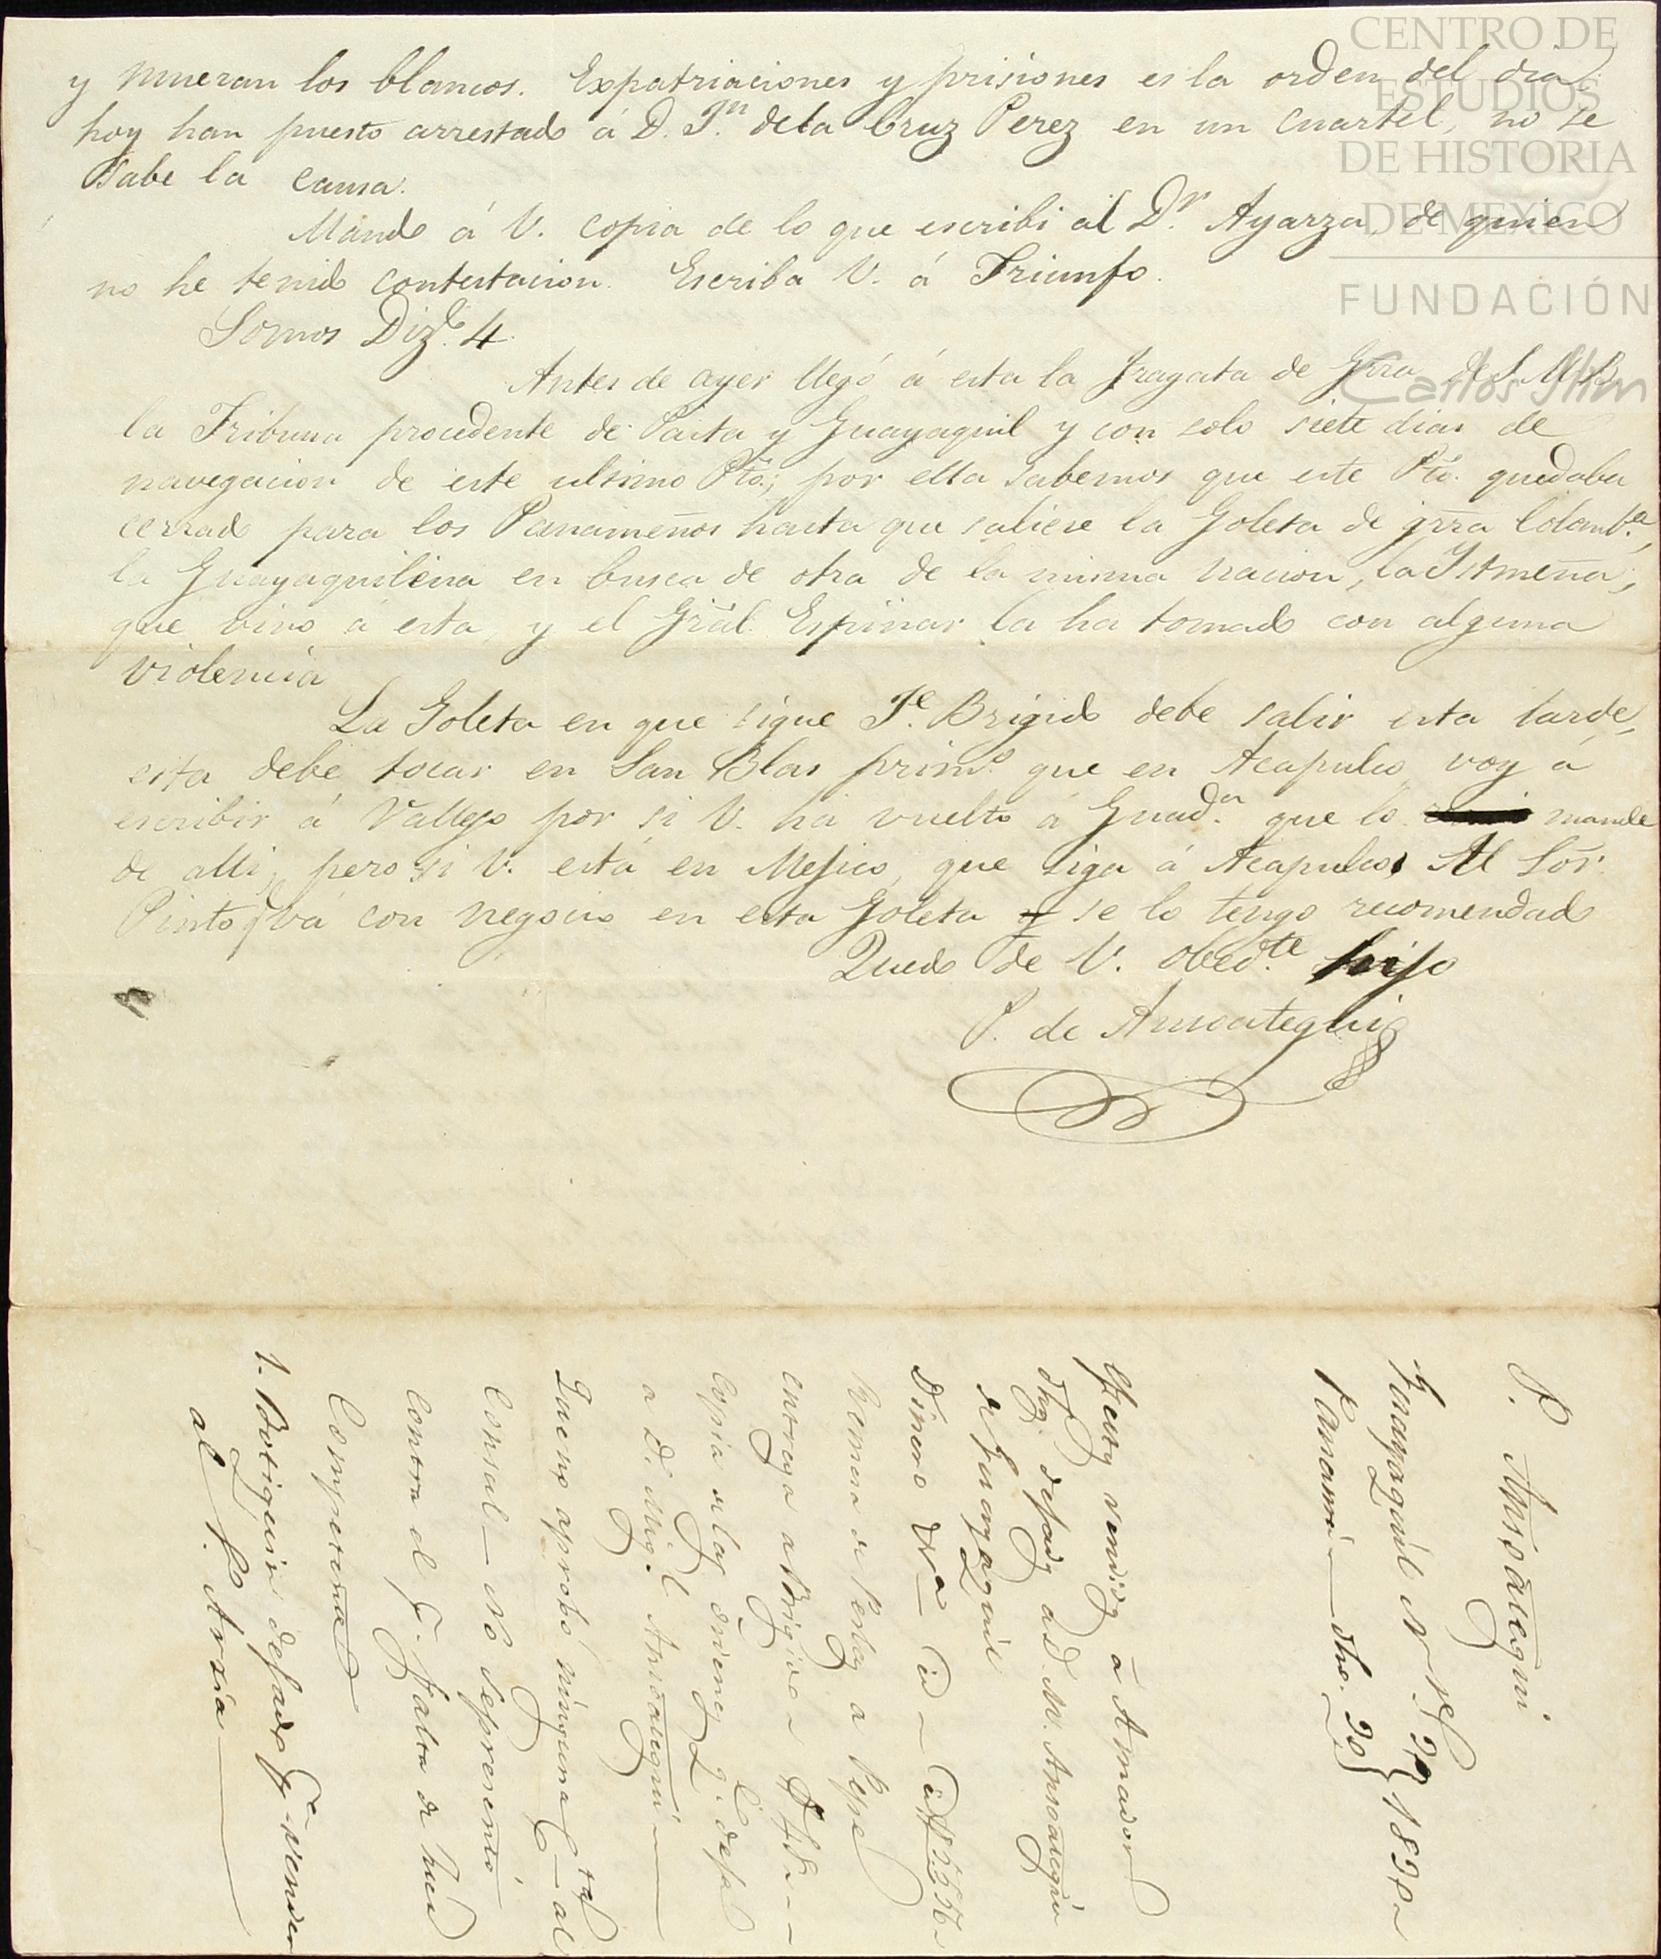 y mueran los blancos. Expatriaciones y prisiones es la orden del dia,
hoy han puesto arrestado á D. Jn. dela Cruz Perez en un cuartel, no se
sabe la causa.
Mando á V. copia de lo que escribi al Dr. Ayarza, de quien
no he tenido contestacion. Escriba V. á Triunfo.
Somos Dize. 4.
Antes de ayer llegó á esta la fragata de Grra de S. M. B.
la Tribuna procedente de Paita y Guayaquil y con solo siete dias de
navegacion de este ultimo Pto.; por ella sabemos que este Pto. quedaba
cerrado para los Panameños hasta que saliese la Goleta de grra Colomba.,
la Guayaquileña en busca de otra de la misma nacion, la Istmeña,
que vino á esta, y el Gral. Espinar la ha tomado con alguna
violencia
La Goleta en que sigue Je. Brigido debe salir esta tarde,
esta debe tocar en San Blas primo. que en Acapulco, voy á
escribir á Vallejo por si V. ha vuelto á Guada. que lo mande
de alli, pero si V. está en Mejico, que siga á Acapulco. Al Sor.
Pinto q va con negocio en esta Goleta se lo tengo recomendado
Quedo de V. obedte. hijo
P. de Ansoategui
P. Ansoategui
Guayaquil 29
Panamá — 20 } 1830
Efectos vendidos á Amador
dejados a D. M. Ansoategui
de Guayaquil
Dinero
Remesa de Perlas a Pepe
entrega a Brigido
Copia de las ordenes q. deja
a D. Migl. Ansoategui —
Queno aprobó ninguna — al
Consul — No se presentó
Contra el falta de
Competencia
1. Botiquin dejado pa. vender
al P. Arsia —
CENTRO DE
ESTUDIOS
DE HISTORIA
DE MEXICO
FUNDACIÓN
Carlos Slim